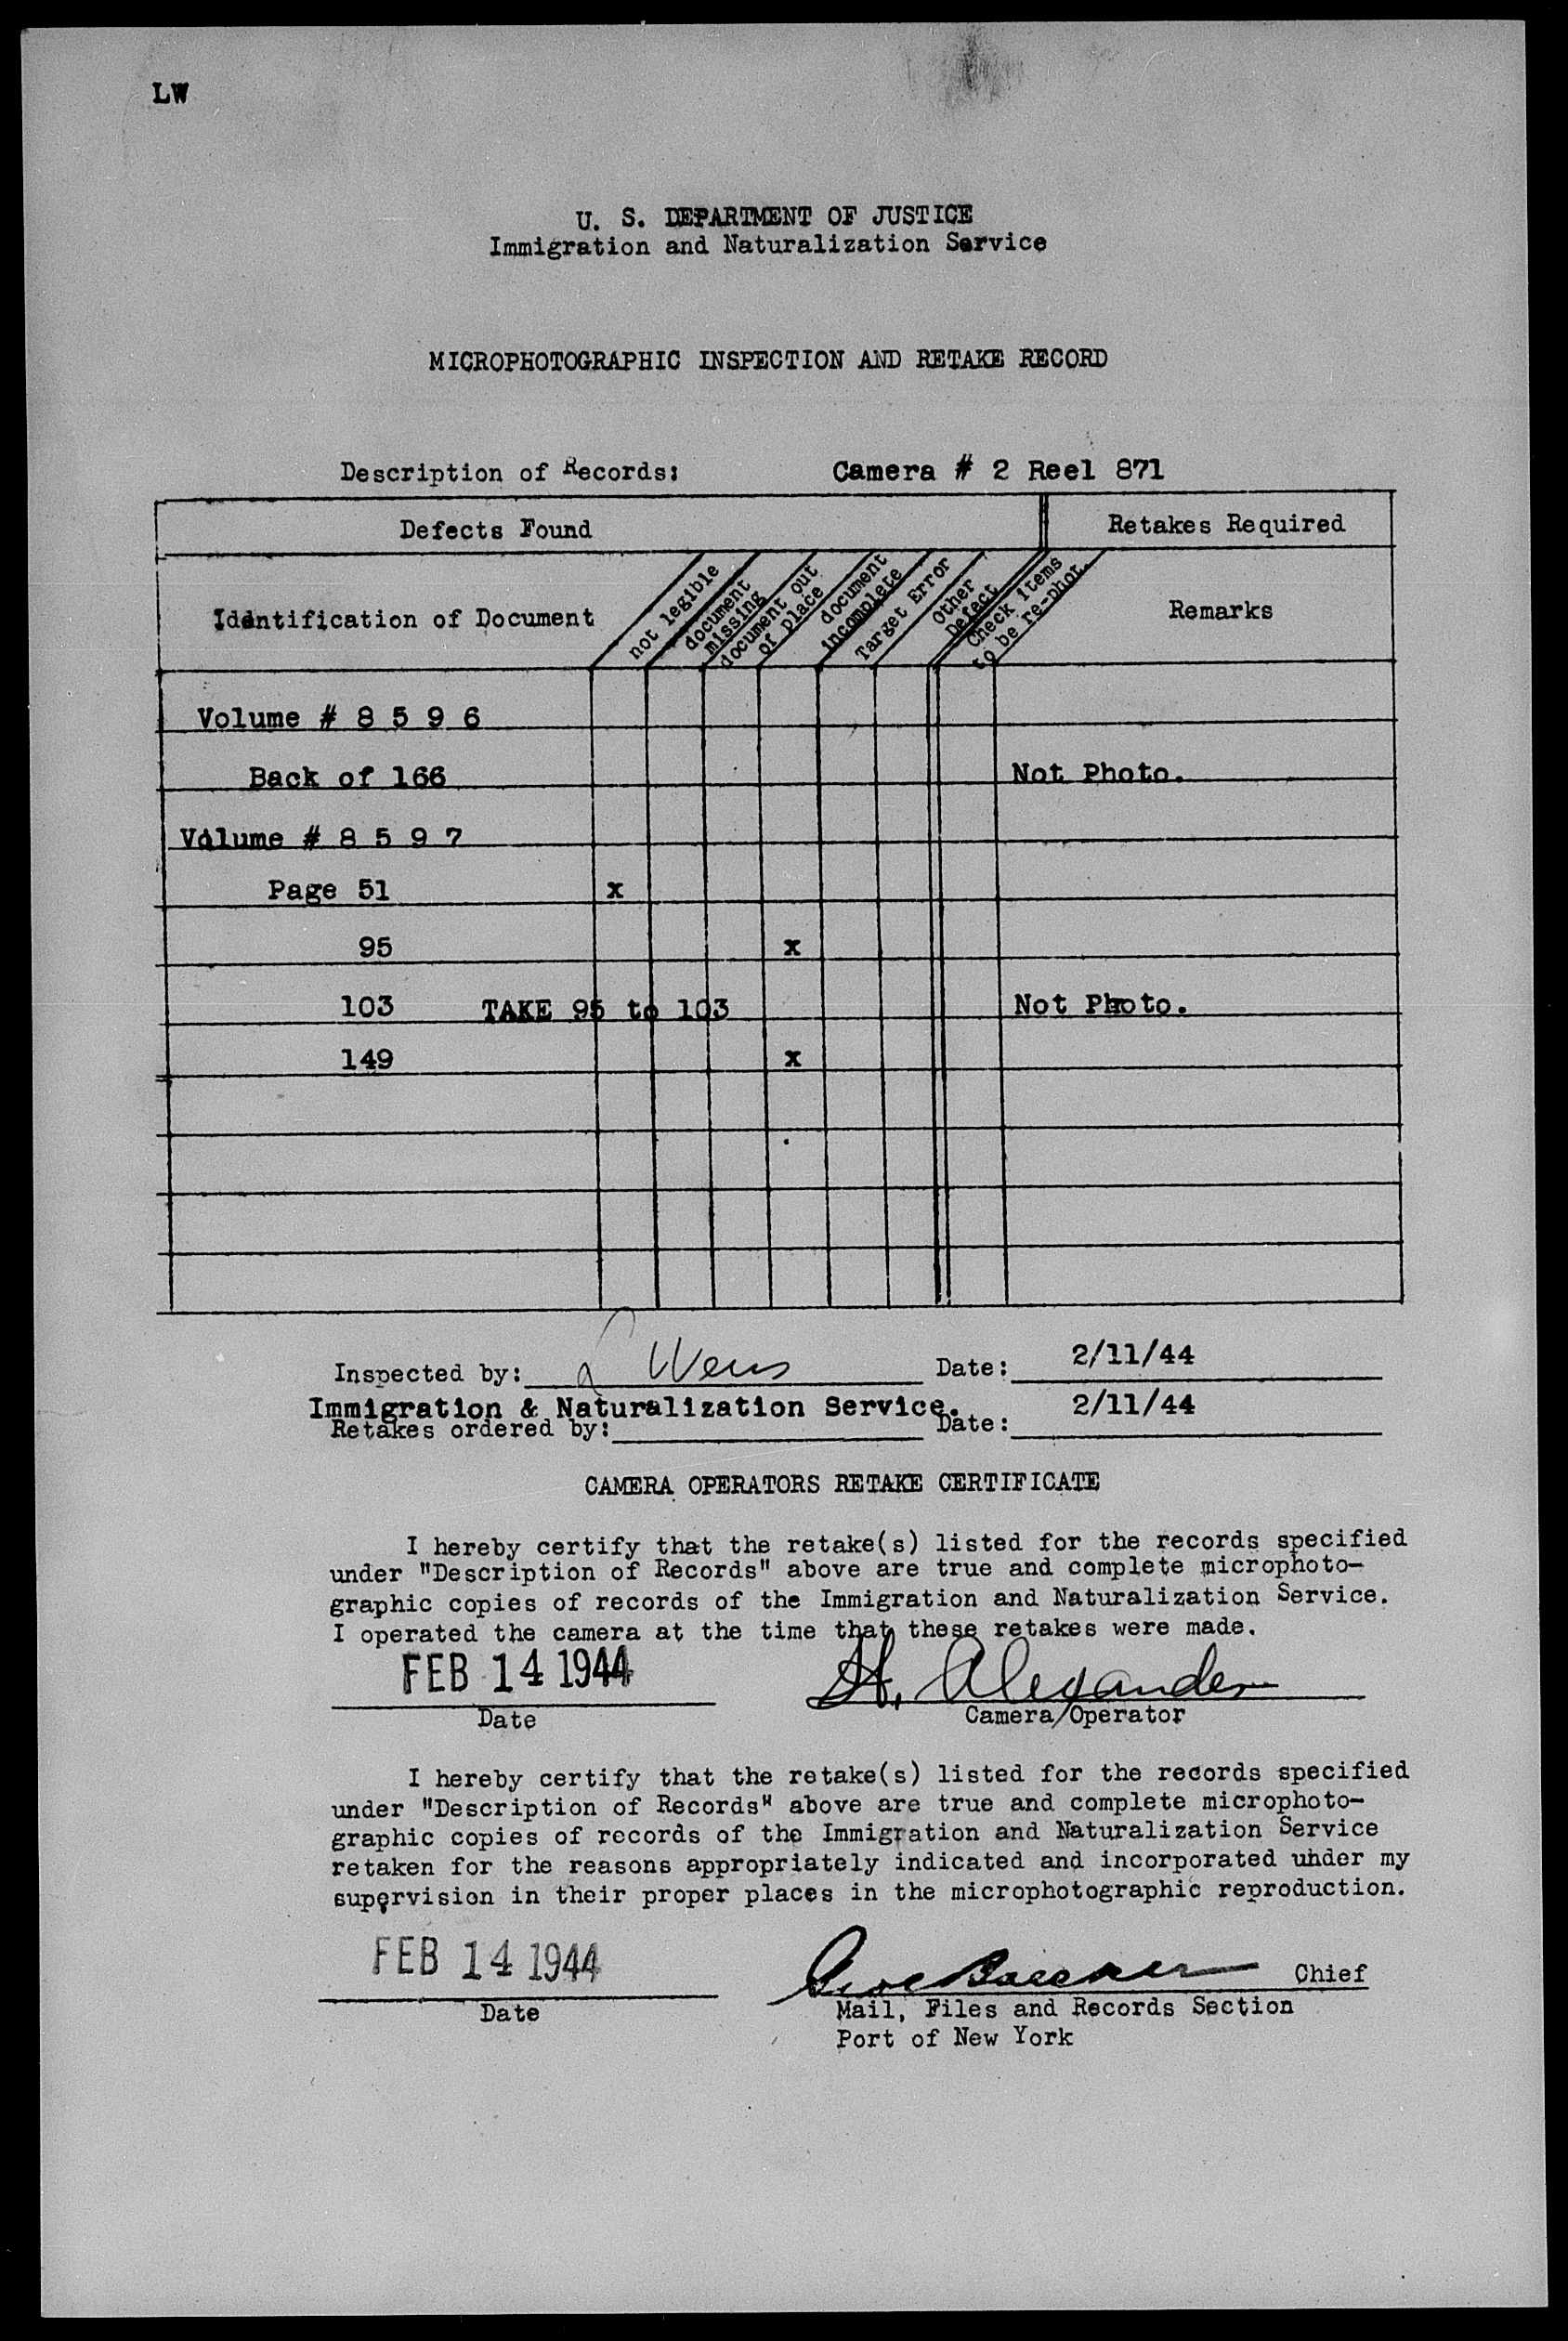 LW
U. S. DEPARTMENT OF JUSTICE
Immigration and Naturalization Service
MICROPHOTOGRAPHIC INSPECTION AND RETAKE RECORD
Description of Records: Camera # 2 Reel 871
Defects Found Retakes Required
Identification of Document
not legible
document missing
document out of place
document incomplete
Target Error
Other Defect
Check items to be re-phot.
Remarks
Volume # 8 5 9 6
Back of 166 Not Photo.
Volume # 8 5 9 7
Page 51 x
95 x
103 TAKE 95 to 103 Not Photo.
149 x
Inspected by: Date: 2/11/44
Immigration & Naturalization Service.
Retakes ordered by: Date: 2/11/44
CAMERA OPERATORS RETAKE CERTIFICATE
I hereby certify that the retake(s) listed for the records specified
under "Description of Records" above are true and complete microphoto-
graphic copies of records of the Immigration and Naturalization Service.
I operated the camera at the time that these retakes were made.
FEB 14 1944 H. Alexander
Date Camera Operator
I hereby certify that the retake(s) listed for the records specified
under "Description of Records" above are true and complete microphoto-
graphic copies of records of the Immigration and Naturalization Service
retaken for the reasons appropriately indicated and incorporated under my
supervision in their proper places in the microphotographic reproduction.
FEB 14 1944 Chief
Date Mail, Files and Records Section
Port of New York